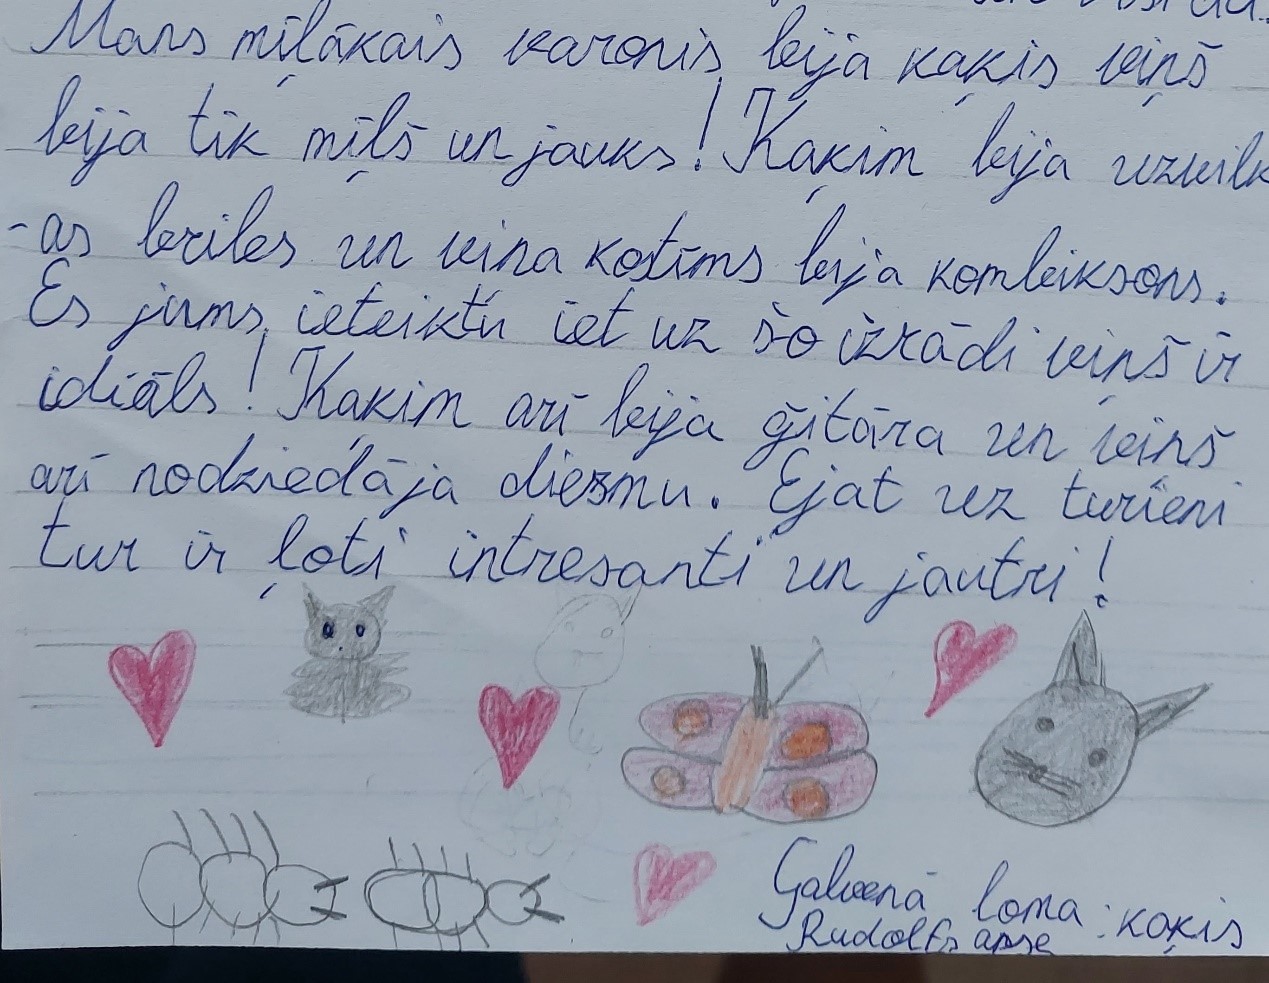 Mans mīļākais varonis bija kaķis viņš
bija tik mīļš un jauks! Kaķim bija uzvilk
-as briles un viņa kostīms bija kombeiksons.
Es jums ieteiktu iet uz šo izrādi viņš ir
idiāls! Kaķim arī bija ģitāra un viņš
arī nodziedāja diezmu. Ejat uz turieni
tur ir ļoti intresanti un jautri!
Galvenā loma: kaķis
Rudolfs apse